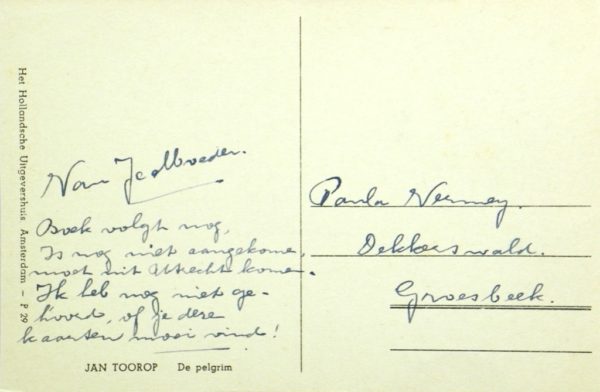 Van Je Moeder.
Boek volgt nog,
Is nog niet aangekomen,
moet uit Utrecht komen.
Ik heb nog niet ge-
hoord, of je deze
kaarten mooi vind!
JAN TOOROP De pelgrim
Het Hollandsche Uitgevershuis Amsterdam – P 29
Paula Vermey.
Dekkerswald.
Groesbeek.